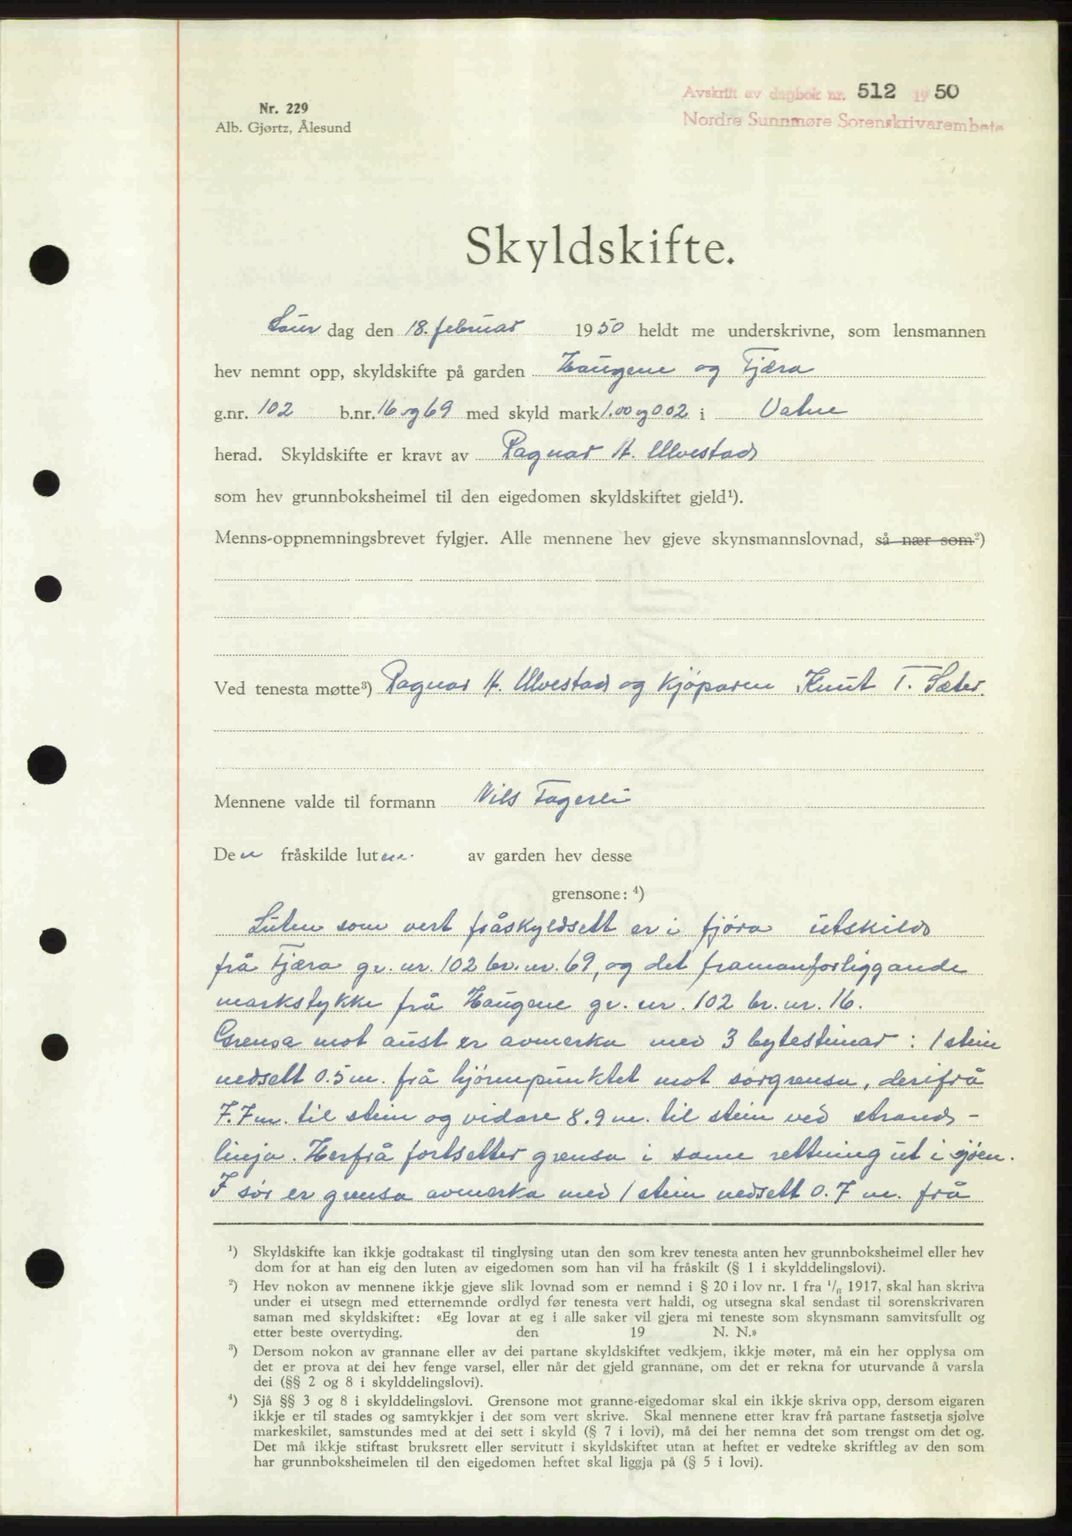 Avskrift av dagbok nr. 512 1950
Nordre Sunnmøre Sorenskrivarembete
Nr. 229
Alb. Gjørtz, Ålesund
Skyldskifte.
Laur dag den 18. februar 1950 heldt me underskrivne, som lensmannen
hev nemnt opp, skyldskifte på garden Haugene og Fjæra
g.nr. 102 b.nr. 16 og 69 med skyld mark 1.00 og 0.02 i Vatne
herad. Skyldskifte er kravt av Ragnar H. Ulvestad
som hev grunnboksheimel til den eigedomen skyldskiftet gjeld¹).
Menns-oppnemningsbrevet fylgjer. Alle mennene hev gjeve skynsmannslovnad, så nær som²)
Ved tenesta møtte³) Ragnar H. Ulvestad og kjöparen Knut T. Sæter.
Mennene valde til formann Nils Fagerli
Den fråskilde luten av garden hev desse
grensone: ⁴)
Luten som vert fråskyldsett er i fjöra utskild
frå Fjæra gr. nr. 102 br. nr. 69, og det framanforliggande
markstykke frå Haugene gr. nr. 102 br. nr. 16.
Grensa mot aust er avmerka med 3 bytesteinar: 1 stein
nedsett 0.5 m. frå hjörnepunktet mot sörgrensa, derifrå
7.7 m. til stein og vidare 8.9 m. til stein ved strand-
linja. Herfrå fortsetter grensa i same rettning ut i sjöen.
I sör er grensa avmerka med 1 stein nedsett 0.7 m. frå
¹) Skyldskifte kan ikkje godtakast til tinglysing utan den som krev tenesta anten hev grunnboksheimel eller hev
dom for at han eig den luten av eigedomen som han vil ha fråskilt (§ 1 i skylddelingslovi).
²) Hev nokon av mennene ikkje gjeve slik lovnad som er nemnd i § 20 i lov nr. 1 fra ¹/₈ 1917, skal han skriva
under ei utsegn med etternemnde ordlyd før tenesta vert haldi, og utsegna skal sendast til sorenskrivaren
saman med skyldskiftet: «Eg lovar at eg i alle saker vil gjera mi teneste som skynsmann samvitsfullt og
etter beste overtyding. den 19 N. N.»
³) Dersom nokon av grannane eller av dei partane skyldskiftet vedkjem, ikkje møter, må ein her opplysa om
det er prova at dei hev fenge varsel, eller når det gjeld grannane, om det er rekna for uturvande å varsla
dei (§§ 2 og 8 i skylddelingslovi).
⁴) Sjå §§ 3 og 8 i skylddelingslovi. Grensone mot granne-eigedomar skal ein ikkje skriva opp, dersom eigaren
ikkje er til stades og samtykkjer i det som vert skrive. Skal mennene etter krav frå partane fastsetja sjølve
markeskilet, samstundes med at dei sett i skyld (§ 7 i lovi), må dei her nemna det som trengst om det og.
Det må ikkje stiftast bruksrett eller servitutt i skyldskiftet utan at heftet er vedteke skriftleg av den som
har grunnboksheimelen til den eigedomen heftet skal liggja på (§ 5 i lovi).